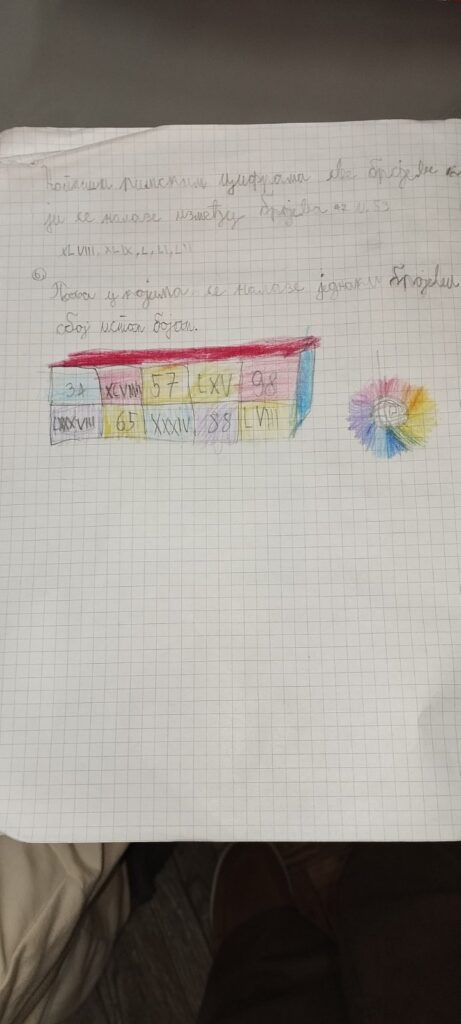 Напиши римским цифрама све бројеве ко
ји се налазе између бројева 47 и 53
XLVIII, XLIX, L, LI, LII
6)
Поља у којима се налазе једнаки бројеви
обој истом бојом.
34 XLVIII 57 LXV 98
LXXXVIII 65 XXXIV 88 LVIII